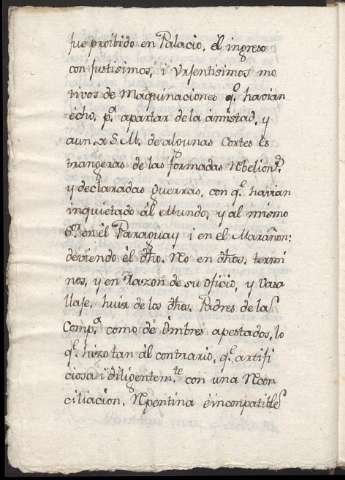 fue proibido en Palacio, el ingreso
con justisimos, i Urjentisimos mo
tivos de Maquinaciones q.e havian
echo, p.a apartar de la amistad, y
aun a S. M. de algunas Cortes Es
trangeras de las formadas Rebelion.s
y declaradas guerras, con q.e havian
inquietado al Mundo, y al mismo
en el Paraguay i en el Marañon;
deviendo el dho. Reo en dhos. termi
nos, y en Razón de su oficio, y Vasa
llaje, huir de los dhos. Padres de la
Comp.a como de ombres apestados, lo
q.e hizo tan al contrario, q.e artifi
ciosa i diligentem.te con una Recon
ciliación, Repentina e incompatible